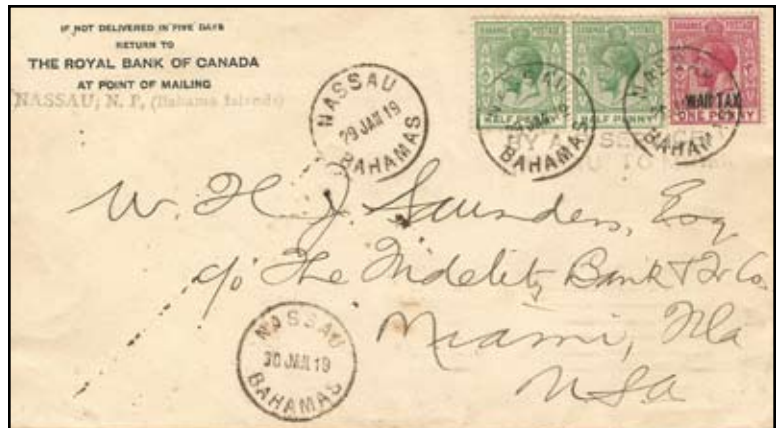 IF NOT DELIVERED IN FIVE DAYS
RETURN TO
THE ROYAL BANK OF CANADA
AT POINT OF MAILING
NASSAU, N. P. (Bahama Islands)
NASSAU
29 JAN 19
BAHAMAS
BAHAMAS POSTAGE
HALF PENNY
BAHAMAS POSTAGE
HALF PENNY
BAHAMAS POSTAGE
WAR TAX
ONE PENNY
NASSAU
BAHAMAS
NASSAU
BAHAMAS
BY SERVICE
TO
W. H. J. Saunders, Esq
c/o The Fidelity Bank & Tr Co.
Miami, Fla
USA
NASSAU
30 JAN 19
BAHAMAS